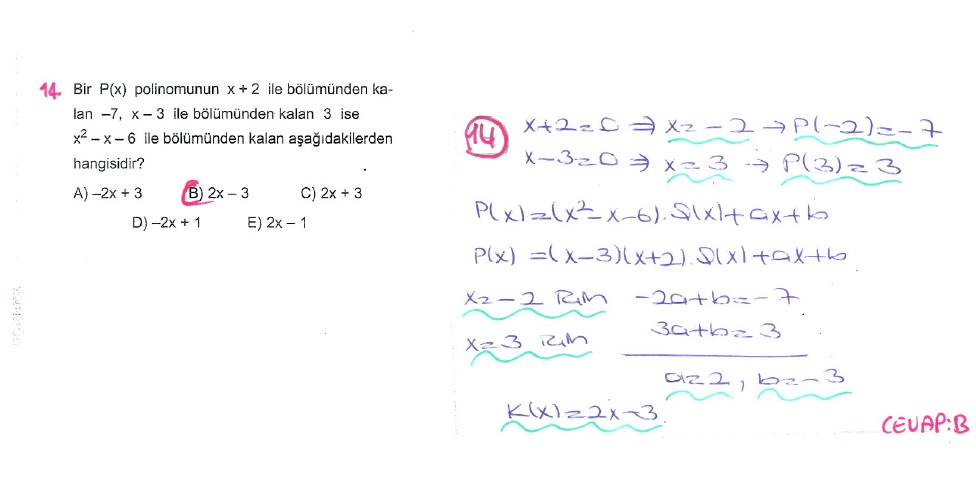 14. Bir P(x) polinomunun x + 2 ile bölümünden ka-
lan –7, x – 3 ile bölümünden kalan 3 ise
x² – x – 6 ile bölümünden kalan aşağıdakilerden
hangisidir?
A) –2x + 3 B) 2x – 3 C) 2x + 3
D) –2x + 1 E) 2x – 1
14 x+2=0 ⇒ x=-2 → P(-2)=-7
x-3=0 ⇒ x=3 → P(3)=3
P(x)=(x²-x-6).Q(x)+ax+b
P(x) =(x-3)(x+2).Q(x)+ax+b
x=-2 için -2a+b=-7
x=3 için 3a+b=3
a=2, b=-3
K(x)=2x-3
CEVAP:B